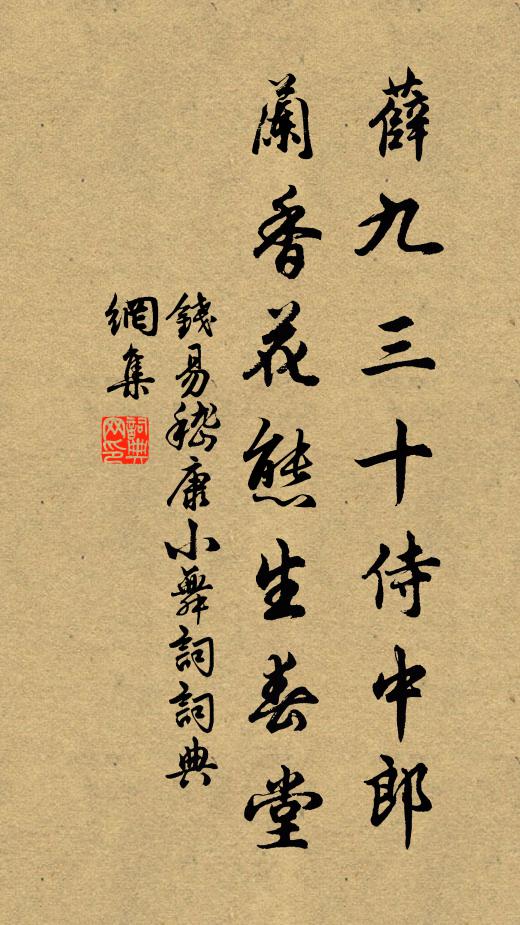 薛九三十侍中郎
蘭香花態生春堂
錢易嵇康小舞詞詞典
網集
詞典
网印